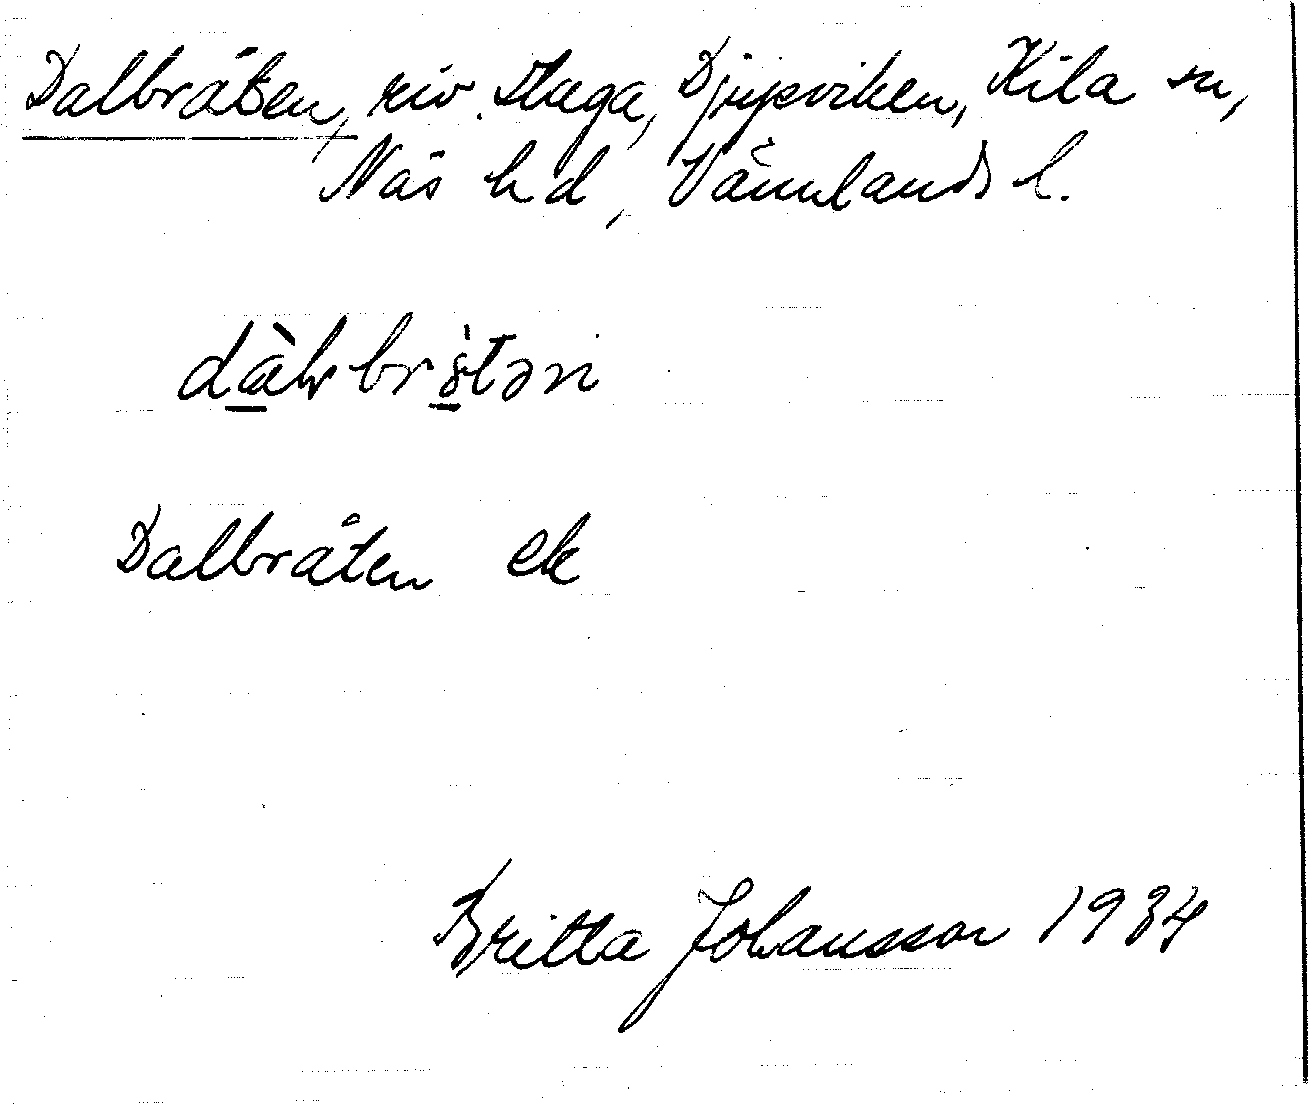 Dalbråten, riv. stuga, Djupviken, Kila sn,
Näs hd, Värmlands l.
dàlbròtən
Dalbråten ek
Britta Johansson 1934